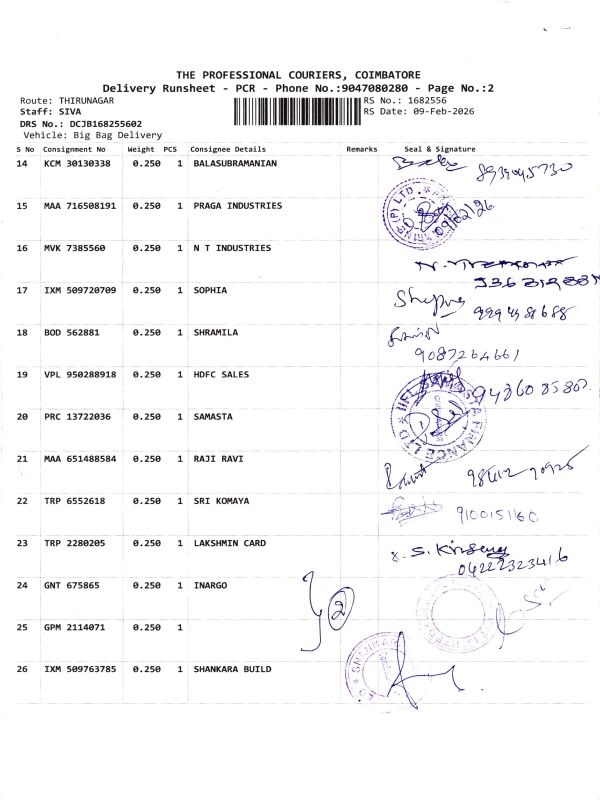 THE PROFESSIONAL COURIERS, COIMBATORE
Delivery Runsheet - PCR - Phone No.:9047080280 - Page No.:2
Route: THIRUNAGAR
RS No.: 1682556
Staff: SIVA
RS Date: 09-Feb-2026
DRS No.: DCJB168255602
Vehicle: Big Bag Delivery
S No Consignment No Weight PCS Consignee Details Remarks Seal & Signature
14 KCM 30130338 0.250 1 BALASUBRAMANIAN
15 MAA 716508191 0.250 1 PRAGA INDUSTRIES
09/02/26
16 MVK 7385560 0.250 1 N T INDUSTRIES
17 IXM 509720709 0.250 1 SOPHIA
18 BOD 562881 0.250 1 SHRAMILA
9087264661
19 VPL 950288918 0.250 1 HDFC SALES
20 PRC 13722036 0.250 1 SAMASTA
21 MAA 651488584 0.250 1 RAJI RAVI
22 TRP 6552618 0.250 1 SRI KOMAYA
910015160
23 TRP 2280205 0.250 1 LAKSHMIN CARD
04222323416
24 GNT 675865 0.250 1 INARGO
2
25 GPM 2114071 0.250 1
26 IXM 509763785 0.250 1 SHANKARA BUILD